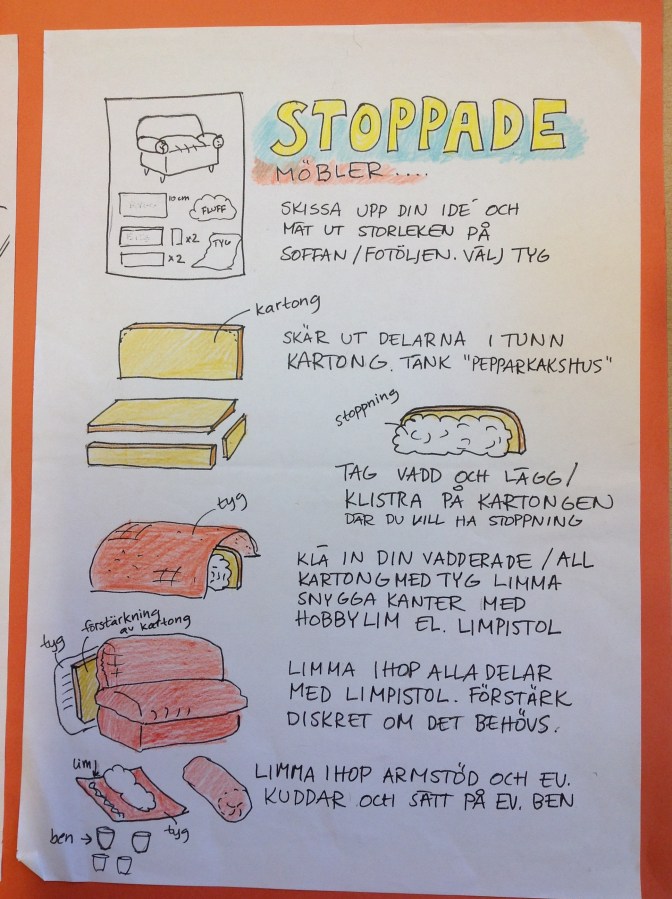 STOPPADE
MÖBLER....
10 cm
FLUFF
x2
TYG
x2
SKISSA UPP DIN IDÉ OCH
MÄT UT STORLEKEN PÅ
SOFFAN/FOTÖLJEN. VÄLJ TYG
kartong
SKÄR UT DELARNA I TUNN
KARTONG. TÄNK "PEPPARKAKSHUS"
stoppning
TAG VADD OCH LÄGG/
KLISTRA PÅ KARTONGEN
DÄR DU VILL HA STOPPNING
tyg
KLÄ IN DIN VADDERADE/ALL
KARTONG MED TYG LIMMA
SNYGGA KANTER MED
HOBBYLIM EL. LIMPISTOL
tyg
förstärkning
av kartong
LIMMA IHOP ALLA DELAR
MED LIMPISTOL. FÖRSTÄRK
DISKRET OM DET BEHÖVS.
lim
tyg
ben
LIMMA IHOP ARMSTÖD OCH EV.
KUDDAR OCH SÄTT PÅ EV. BEN